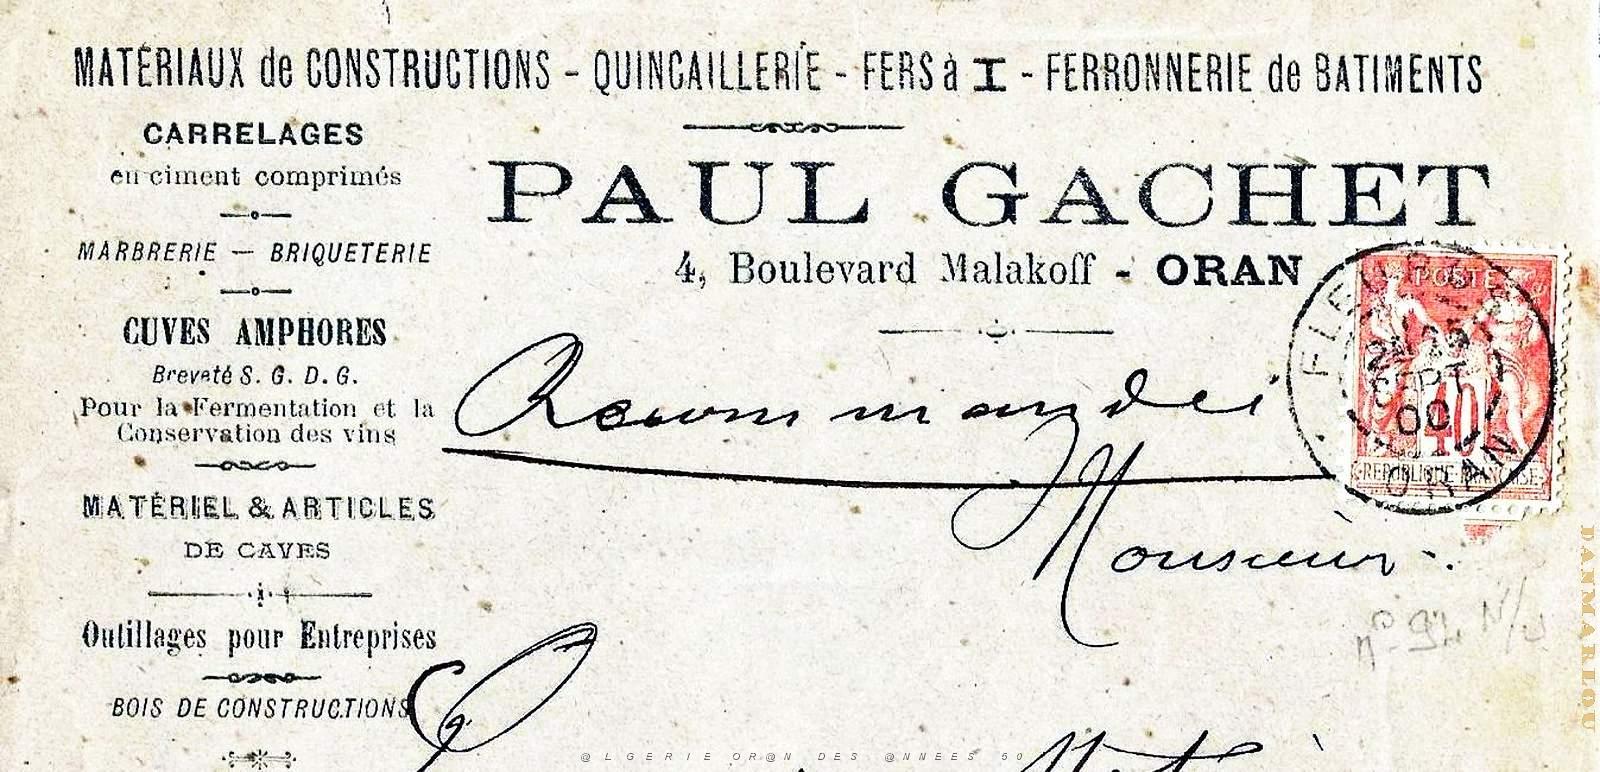 MATÉRIAUX de CONSTRUCTIONS - QUINCAILLERIE - FERS à I - FERRONNERIE de BATIMENTS
CARRELAGES
en ciment comprimés
MARBRERIE — BRIQUETERIE
CUVES AMPHORES
Breveté S. G. D. G.
Pour la Fermentation et la
Conservation des vins
MATÉRIEL & ARTICLES
DE CAVES
Outillages pour Entreprises
BOIS DE CONSTRUCTIONS
PAUL GACHET
4, Boulevard Malakoff - ORAN
Recommandée
Monsieur
POSTE
FLEURUS
25
SEPT
00
ORAN
REPUBLIQUE FRANÇAISE
DANMARLOU
@LGERIE OR@N DES @NNEES 50